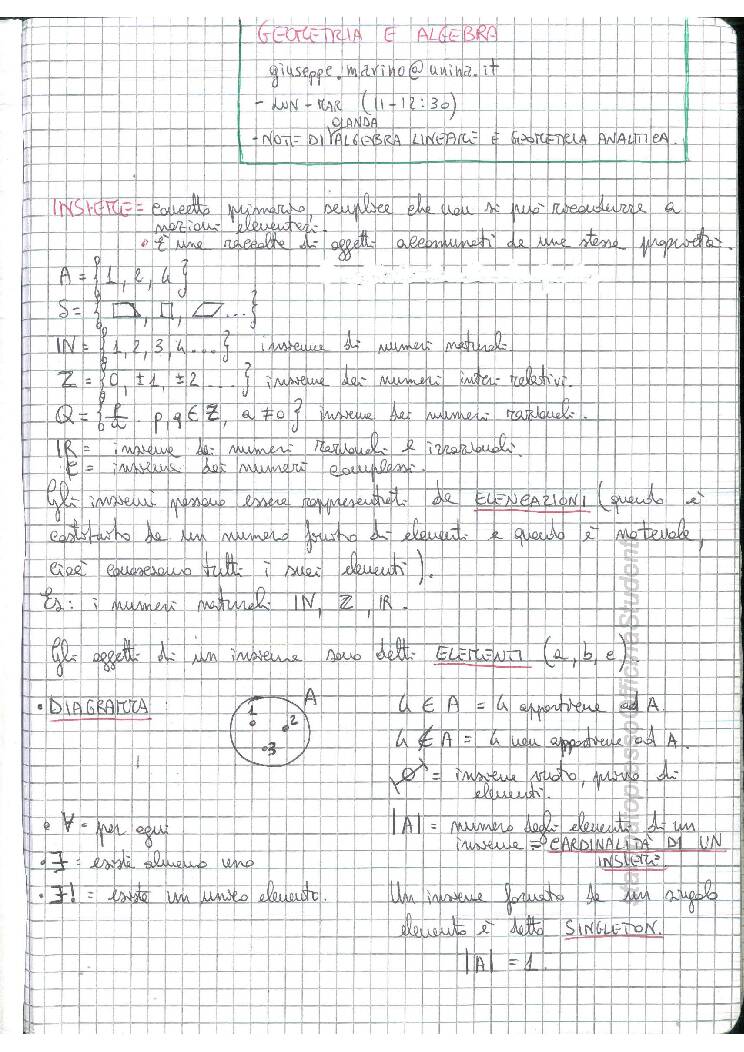 GEOMETRIA E ALGEBRA
giuseppe.marino@unina.it
- LUN - MAR (11-12:30)
OLANDA
- NOTE DI ALGEBRA LINEARE E GEOMETRIA ANALITICA.
INSIEME = concetto primario, semplice che non si può ricondurre a
nozioni elementari.
• È una raccolta di oggetti accomunati da una stessa proprietà.
A = {1, 2, 4}
S = { , , ...}
IN = {1, 2, 3, 4 ...} insieme di numeri naturali.
Z = {0, ±1, ±2 ...} insieme dei numeri interi relativi.
Q = {p/q . p, q ∈ Z, q ≠ 0} insieme dei numeri razionali.
IR = insieme dei numeri razionali e irrazionali.
C = insieme dei numeri complessi.
Gli insiemi possono essere rappresentati da ELENCAZIONI (quando è
costituito da un numero finito di elementi e quando è naturale,
cioè conoscono tutti i suoi elementi).
Es: i numeri naturali IN, Z, IR.
Gli oggetti di un insieme sono detti ELEMENTI (a, b, c)
• DIAGRAMMA:
A
1
2
3
4 ∈ A = 4 appartiene ad A.
4 ∉ A = 4 non appartiene ad A.
∅ = insieme vuoto, privo di
elementi.
• ∀ = per ogni
• ∃ = esiste almeno uno
• ∃! = esiste un unico elemento.
|A| = numero degli elementi di un
insieme = CARDINALITÀ DI UN
INSIEME
Un insieme formato da un singolo
elemento è detto SINGLETON.
|A| = 1.